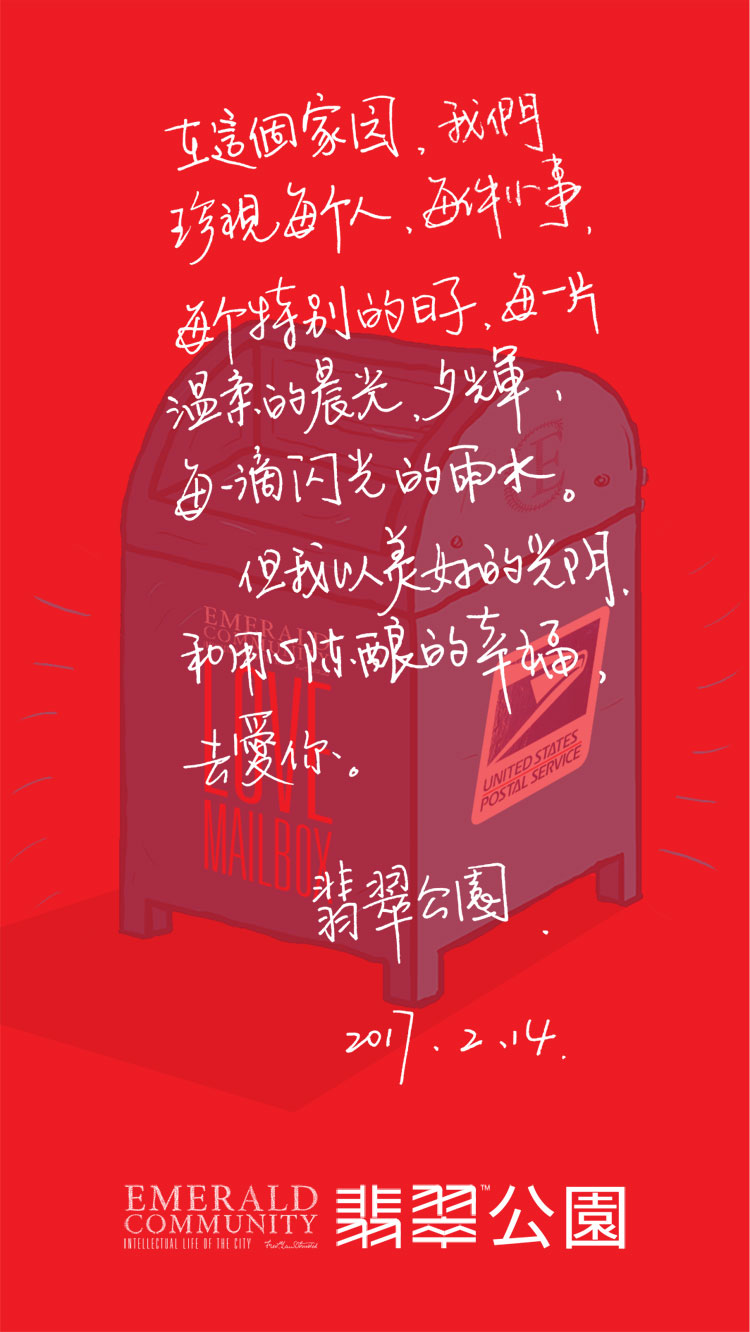 在這個家园，我們
珍視每个人、每件小事、
每个特别的日子、每一片
温柔的晨光、夕輝、
每一滴闪光的雨水。
但我以美好的光阴、
和用心陈酿的幸福，
去愛你。
翡翠公園.
2017.2.14.
E
EMERALD
COMMUNITY
LOVE
MAILBOX
UNITED STATES
POSTAL SERVICE
EMERALD
COMMUNITY
INTELLECTUAL LIFE OF THE CITY
翡翠™公園